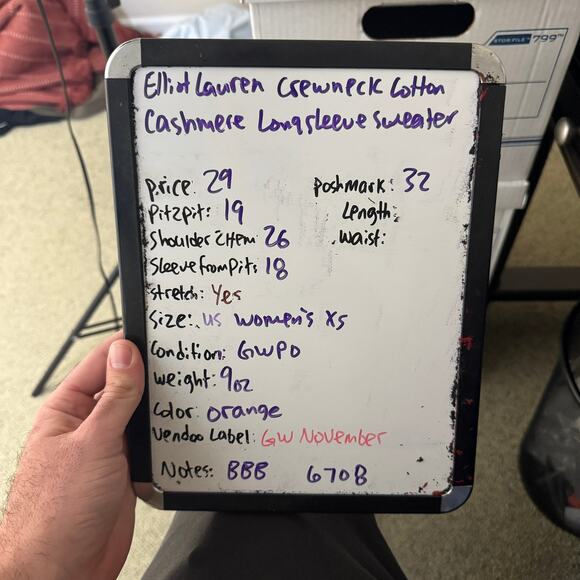 Elliot Lauren Crewneck Cotton
Cashmere Longsleeve sweater
price: 29 poshmark: 32
Pit2pit: 19 Length:
Shoulder2Hem 26 waist:
Sleeve from Pit: 18
Stretch: Yes
Size: US Women's XS
Condition: GWPO
weight: 9oz
Color: orange
Vendoo Label: GW November
Notes: BBB 670B
STOR/FILE™ 799™